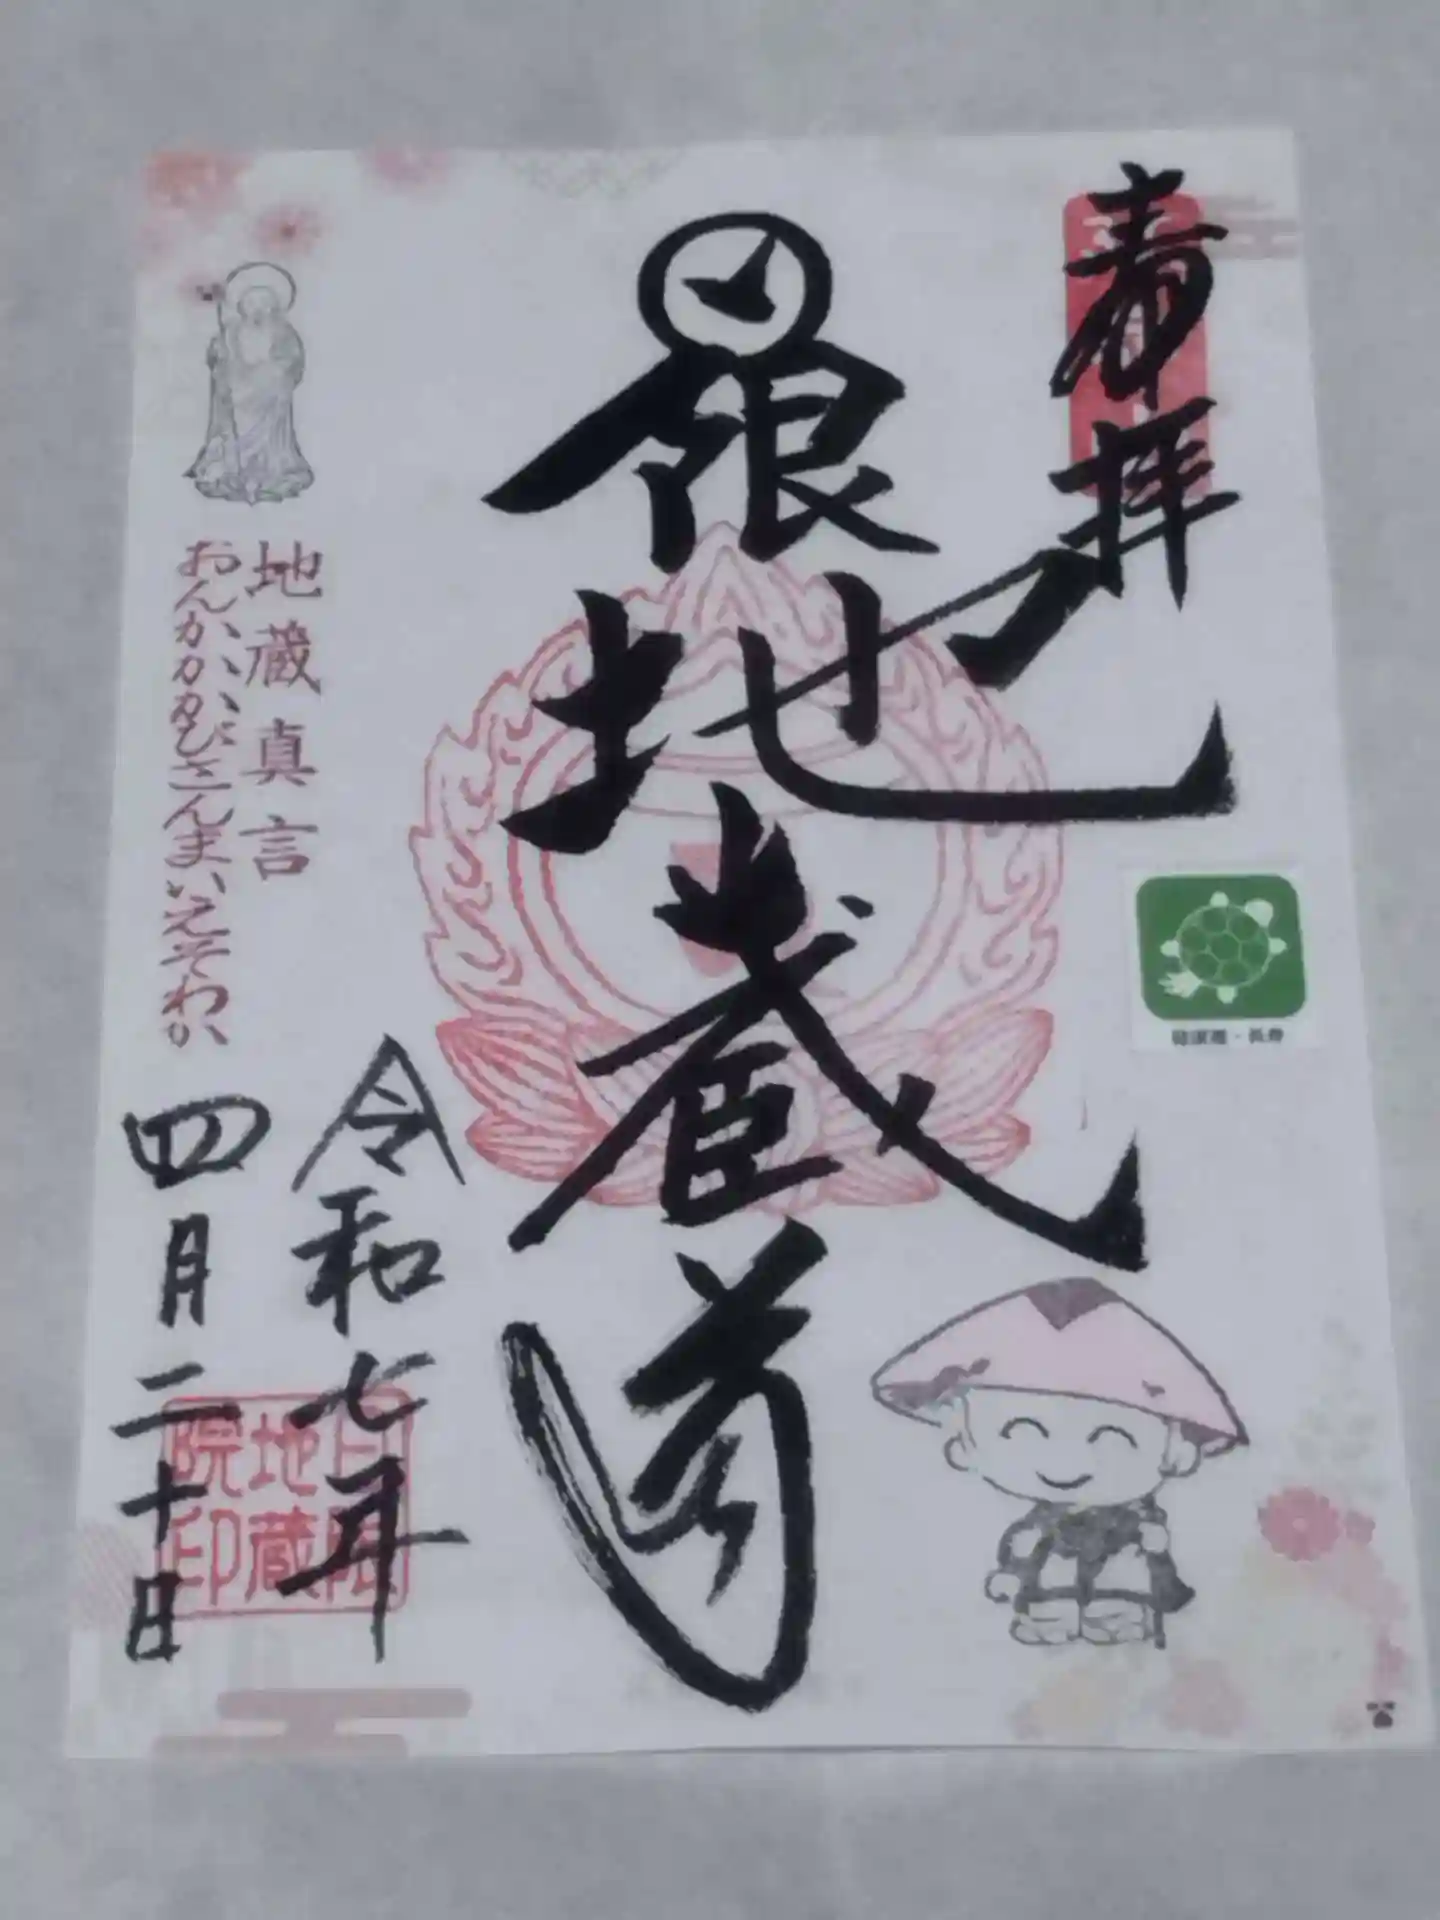 奉拝
日限地蔵尊
健康運・長寿
地蔵真言
おんかかかびさんまいえそわか
令和七年
四月二十日
日限
地蔵
院印